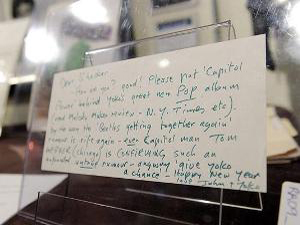 Dear
How are you? good! Please put 'Capitol
Power' behind Yoko's great new Pop album
(read Melody Maker review - N.Y. Times, etc).
By the way the 'Beatles getting together again'
rumour is rife again - even Capitol man Tom
is CONFIRMING such an
untrue rumour - anyway give Yoko
a chance, Happy New Year
love John + Yoko